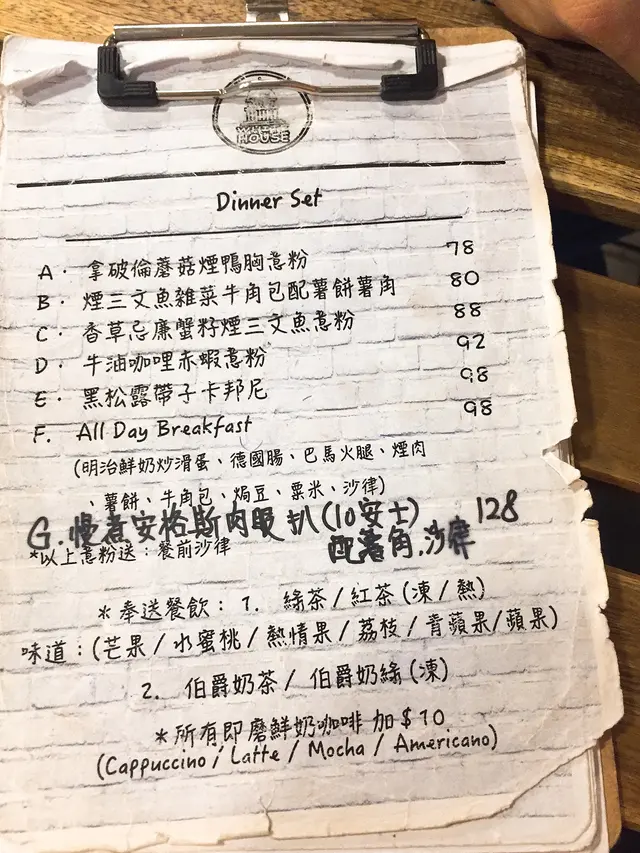 HOUSE
Dinner Set
A. 拿破倫蘑菇煙鴨胸意粉 78
B. 煙三文魚雜菜牛角包配薯餅薯角 80
C. 香草忌廉蟹籽煙三文魚意粉 88
D. 牛油咖哩赤蝦意粉 92
E. 黑松露帶子卡邦尼 98
F. All Day Breakfast 98
(明治鮮奶炒滑蛋、德國腸、巴馬火腿、煙肉
、薯餅、牛角包、焗豆、粟米、沙律)
G. 慢煮安格斯肉眼扒(10安士) 128
配薯角.沙律
*以上意粉送：餐前沙律
*奉送餐飲：1. 綠茶/紅茶(凍/熱)
味道：(芒果/水蜜桃/熱情果/荔枝/青蘋果/蘋果)
2. 伯爵奶茶/伯爵奶綠(凍)
*所有即磨鮮奶咖啡 加$10
(Cappuccino/Latte/Mocha/Americano)